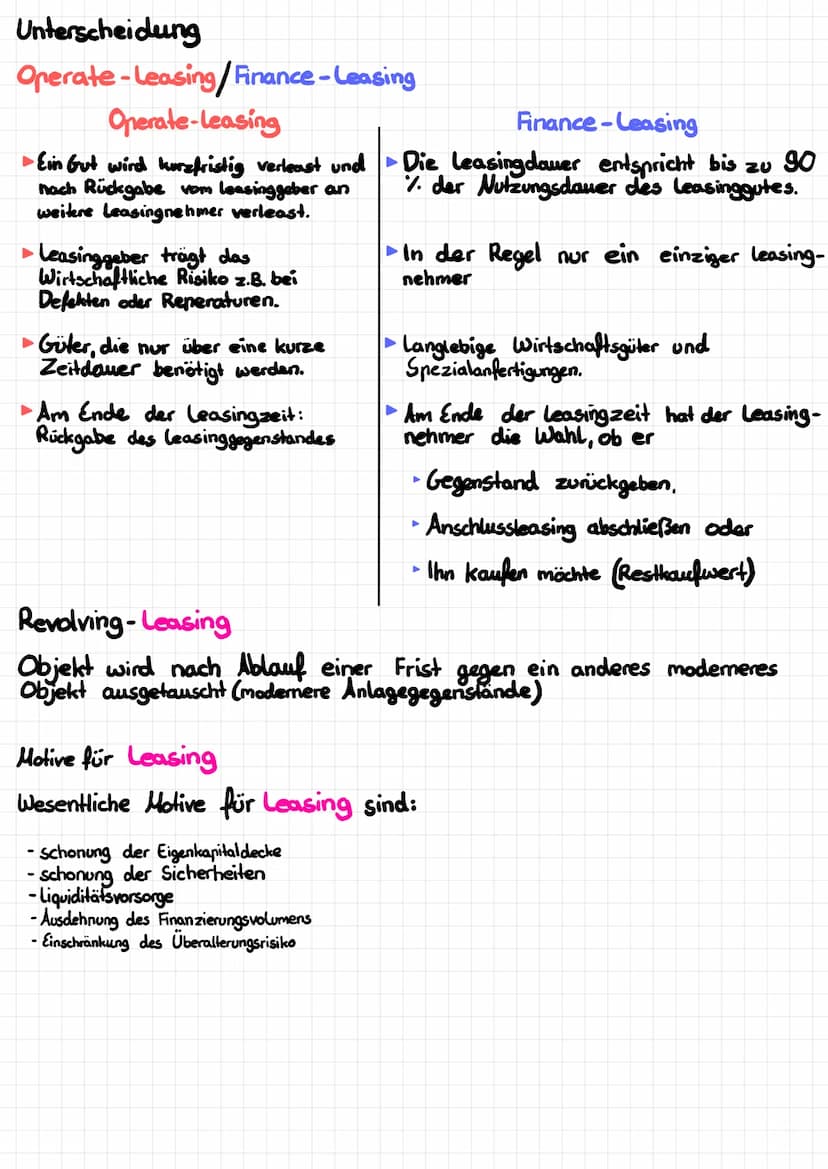 Unterscheidung
Operate-Leasing/Finance-Leasing
Operate-Leasing
▸Ein Gut wird kurzfristig verleast und
nach Rückgabe vom Leasinggeber an
weitere Leasingnehmer verleast.
▸Leasinggeber trägt das
Wirtschaftliche Risiko z.B. bei
Defekten oder Reperaturen.
▸Güter, die nur über eine kurze
Zeitdauer benötigt werden.
▸Am Ende der Leasingzeit:
Rückgabe des Leasinggegenstandes
Finance-Leasing
▸Die Leasingdauer entspricht bis zu 90
% der Nutzungsdauer des Leasinggutes.
▸In der Regel nur ein einziger Leasing-
nehmer
▸Langlebige Wirtschaftsgüter und
Spezialanfertigungen.
▸Am Ende der Leasingzeit hat der Leasing-
nehmer die Wahl, ob er
▸Gegenstand zurückgeben,
▸Anschlussleasing abschließen oder
▸Ihn kaufen möchte (Restkaufwert)
Revolving-Leasing
Objekt wird nach Ablauf einer Frist gegen ein anderes moderneres
Objekt ausgetauscht (modernere Anlagegegenstände)
Motive für Leasing
Wesentliche Motive für Leasing sind:
- schonung der Eigenkapitaldecke
- schonung der Sicherheiten
- Liquiditätsvorsorge
- Ausdehnung des Finanzierungsvolumens
- Einschränkung des Überalterungsrisiko